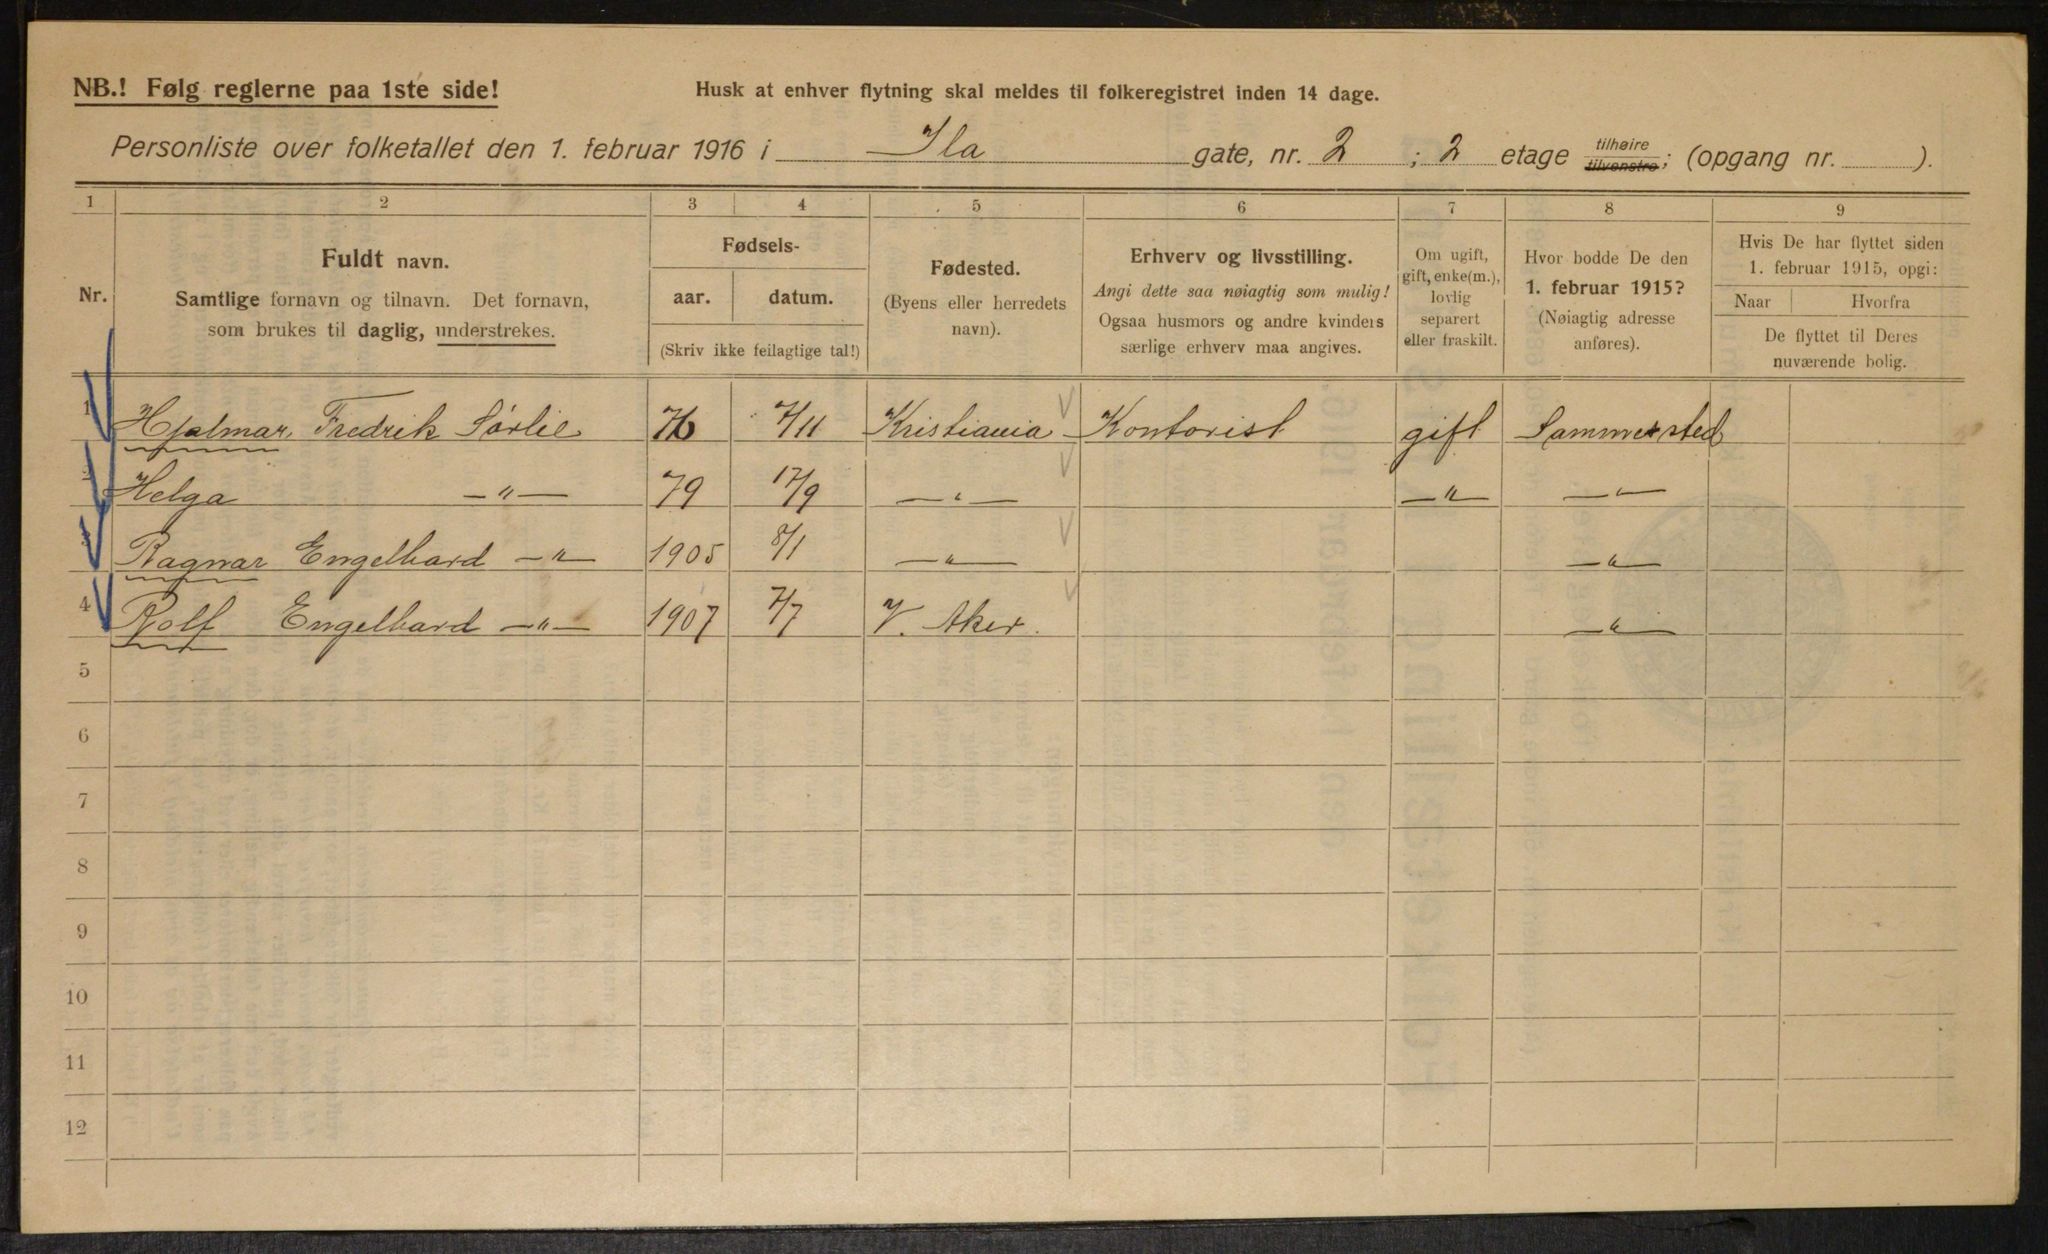 NB.! Følg reglerne paa 1ste side!
Husk at enhver flytning skal meldes til folkeregistret inden 14 dage.
Personliste over folketallet den 1. februar 1916 i Ila gate, nr. 2 ; 2 etage tilhøire tilvenstre; (opgang nr. ).
1 2 3 4 5 6 7 8 9
Nr.
Fuldt navn.
Samtlige fornavn og tilnavn. Det fornavn,
som brukes til daglig, understrekes.
Fødsels-
aar. datum.
(Skriv ikke feilagtige tal!)
Fødested.
(Byens eller herredets
navn).
Erhverv og livsstilling.
Angi dette saa nøiagtig som mulig!
Ogsaa husmors og andre kvinders
særlige erhverv maa angives.
Om ugift,
gift, enke(m.),
lovlig
separert
eller fraskilt.
Hvor bodde De den
1. februar 1915?
(Nøiagtig adresse
anføres).
Hvis De har flyttet siden
1. februar 1915, opgi:
Naar Hvorfra
De flyttet til Deres
nuværende bolig.
1 Hjalmar Fredrik Sørlie 76 7/11 Kristiania Kontorist gift Sammested
2 Helga —"— 79 17/9 —"— —"— —"—
3 Ragnar Engelhard —"— 1905 8/1 —"— —"—
4 Rolf Engelhard —"— 1907 7/7 V. Aker. —"—
5
6
7
8
9
10
11
12